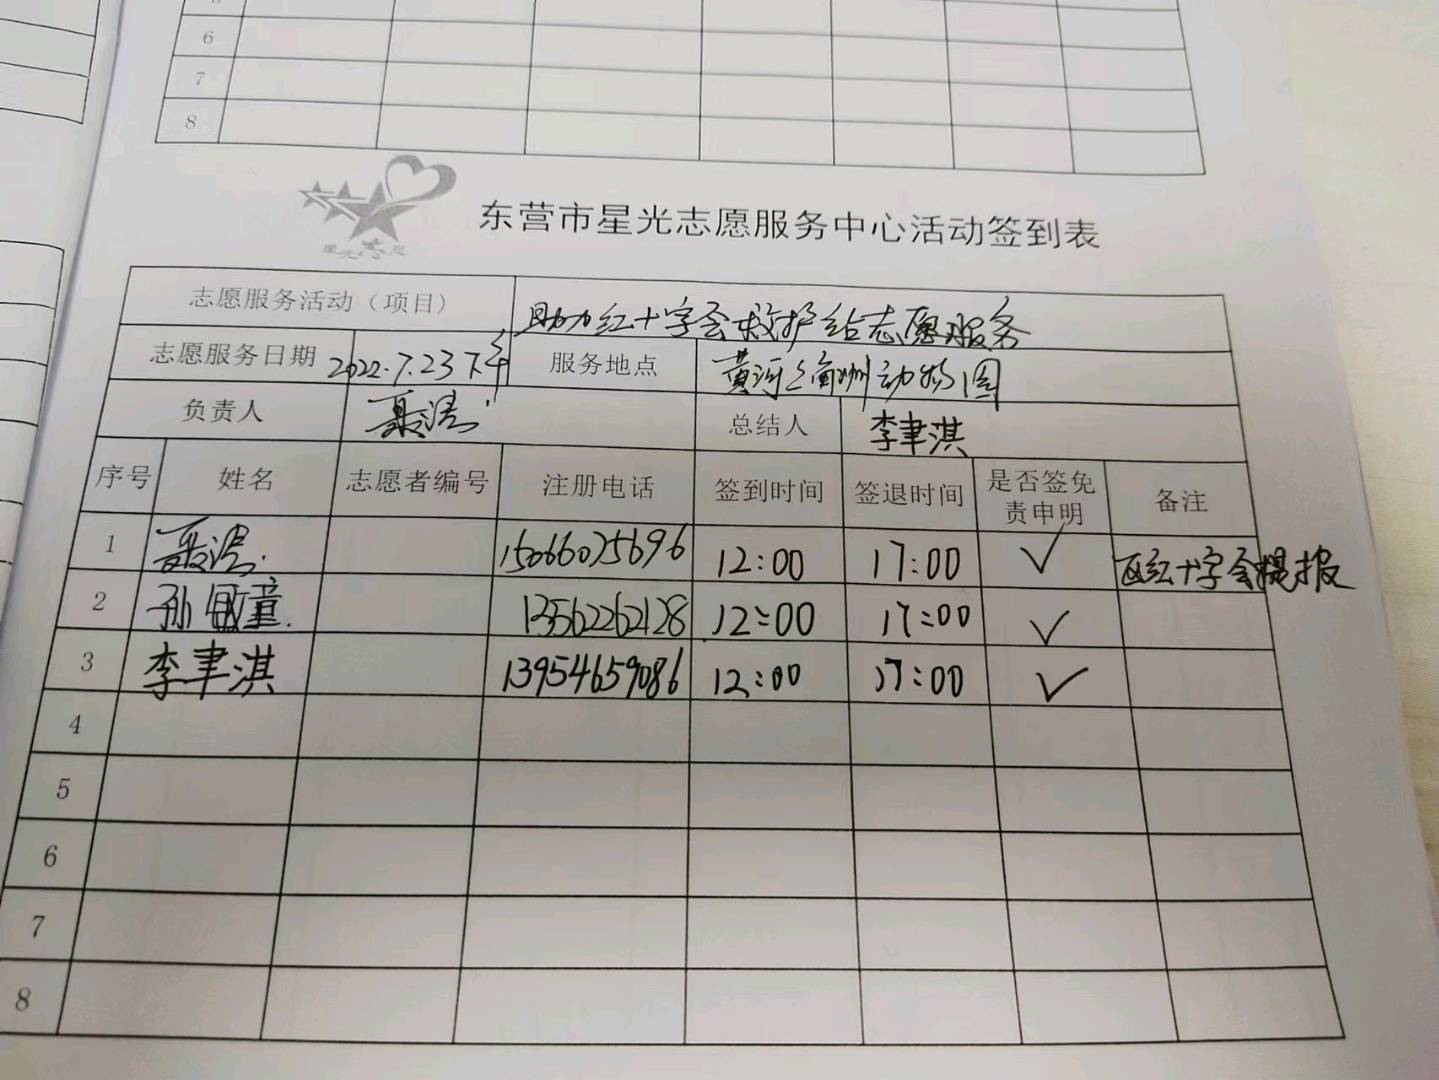 6
7
8
星光志愿
东营市星光志愿服务中心活动签到表
志愿服务活动（项目） 助力红十字会救护站志愿服务
志愿服务日期 2022.7.23下午 服务地点 黄河 动物园
负责人 总结人 李聿淇
序号 姓名 志愿者编号 注册电话 签到时间 签退时间 是否签免责申明 备注
1 15066075696 12:00 17:00 ✓ 区红十字会提报
2 孙 童 13562262128 12:00 17:00 ✓
3 李聿淇 13954659086 12:00 17:00 ✓
4
5
6
7
8